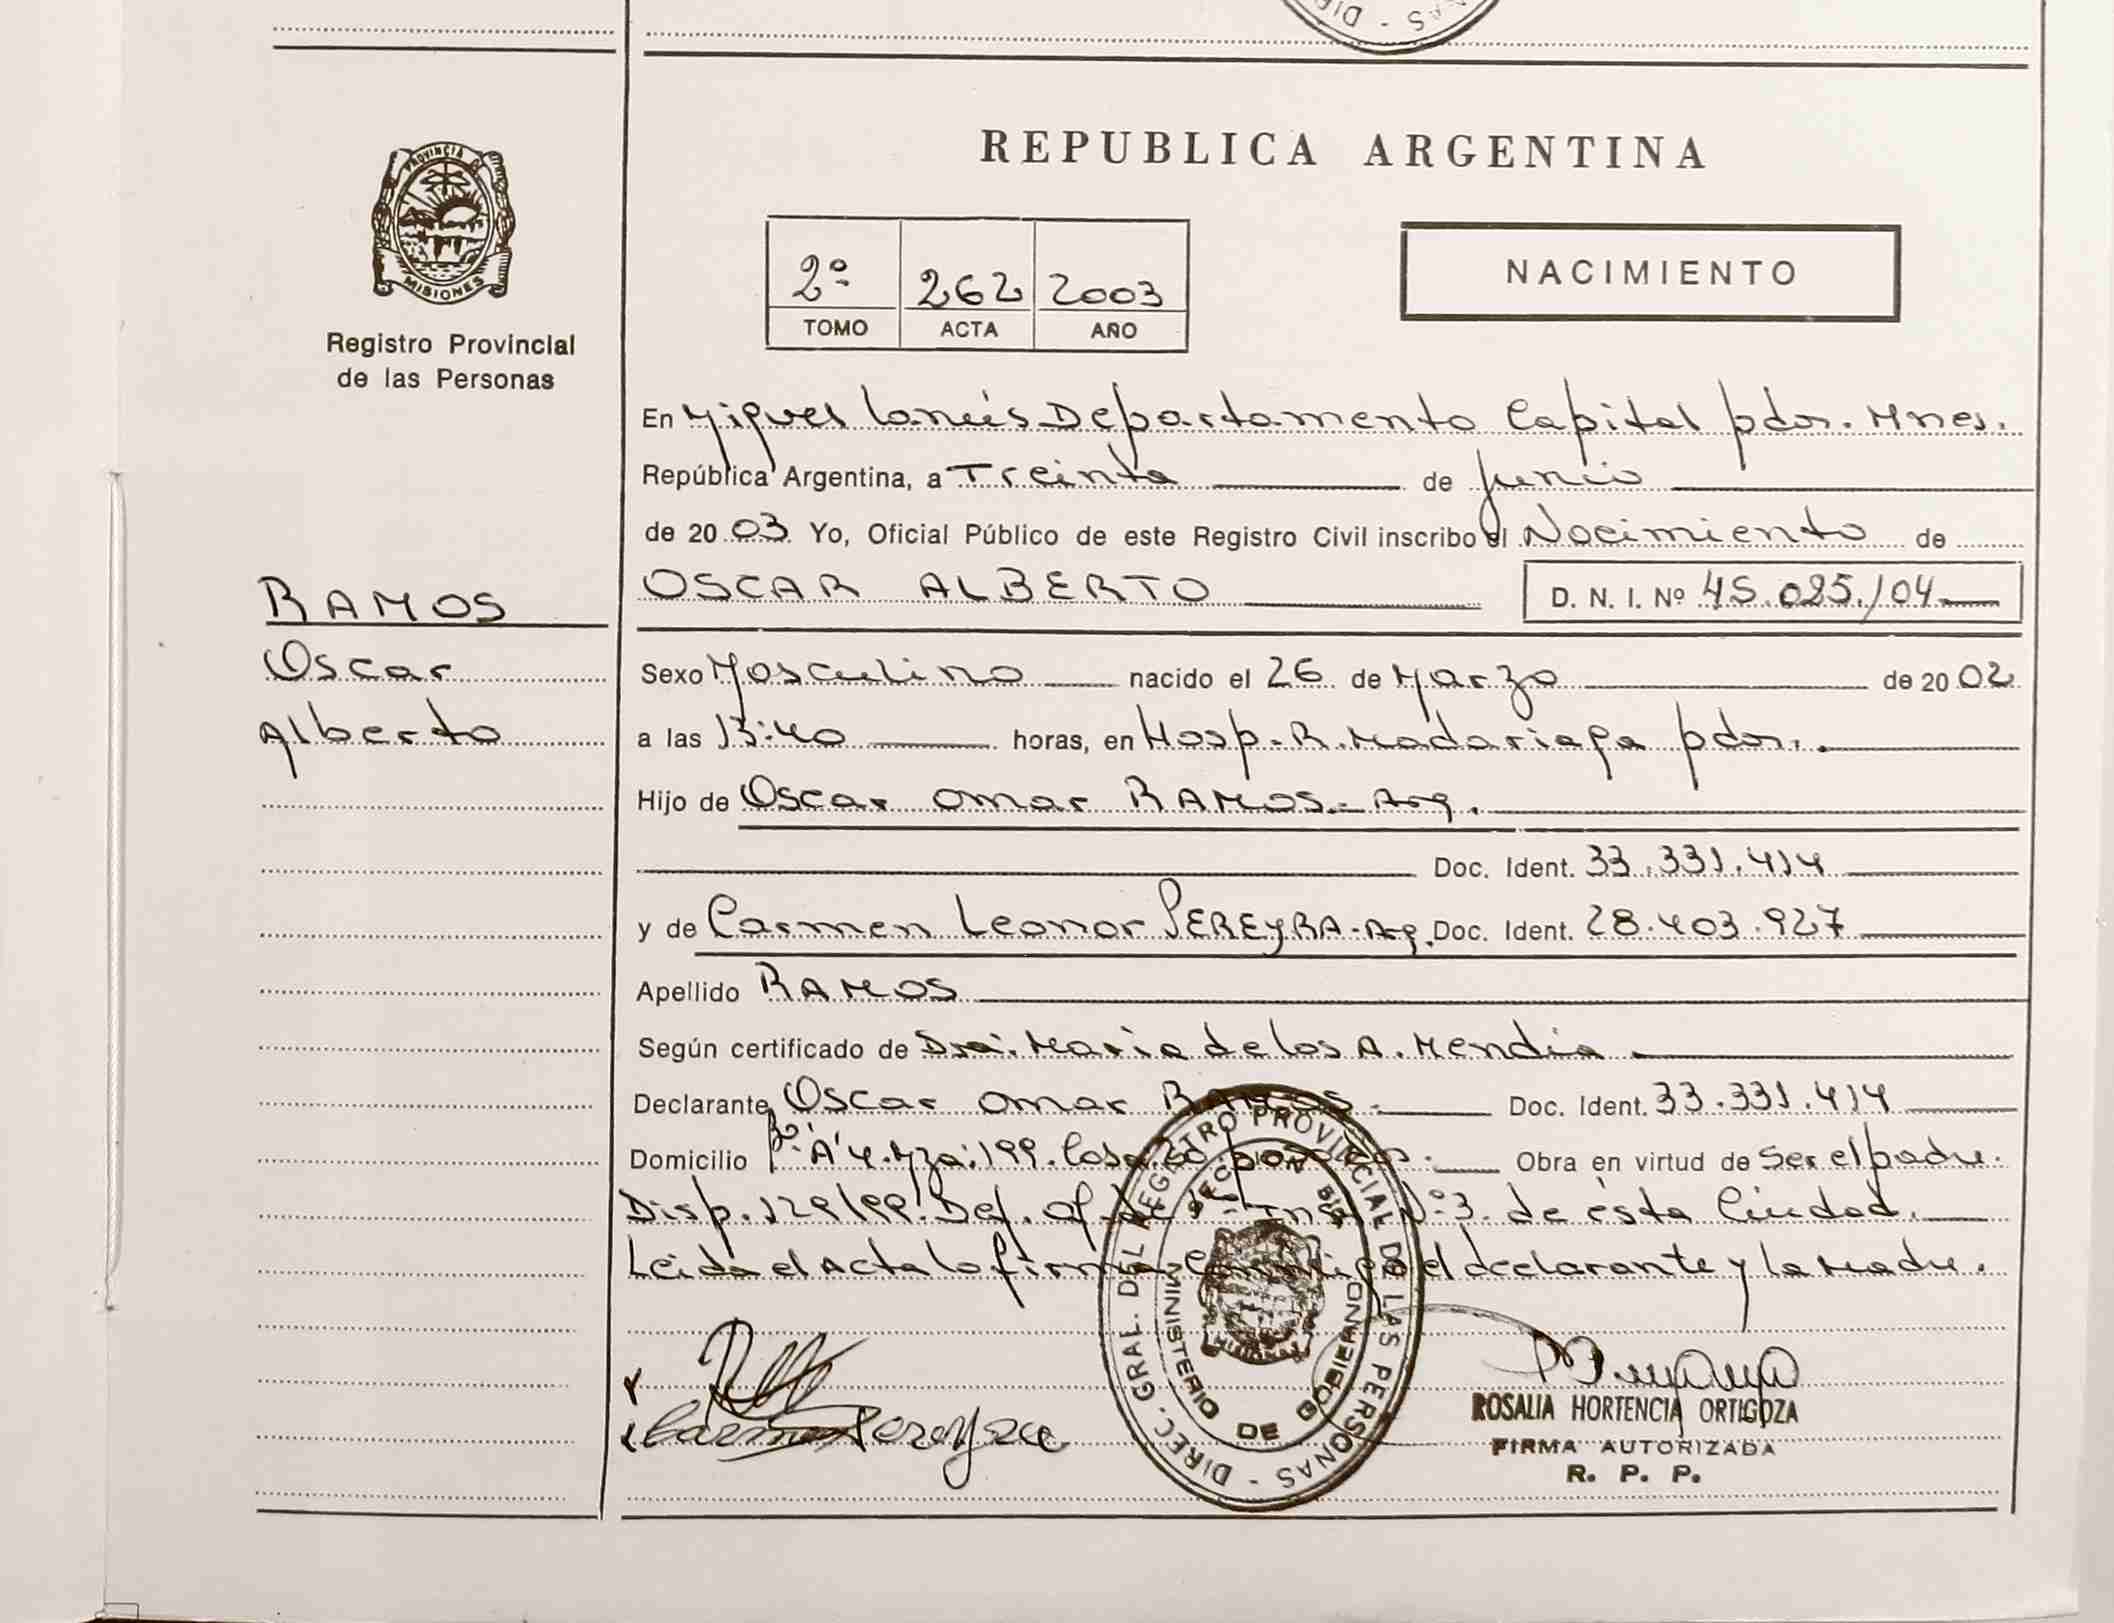 REPUBLICA ARGENTINA
PROVINCIA DE MISIONES
Registro Provincial
de las Personas
2º 262 2003
TOMO ACTA AÑO
NACIMIENTO
En Miguel Lanús Departamento Capital pdas. Mnes.
República Argentina, a Treinta de Junio
de 2003 Yo, Oficial Público de este Registro Civil inscribo el Nacimiento de
OSCAR ALBERTO D. N. I. Nº 45.025.104
RAMOS
Oscar
Alberto
Sexo Masculino nacido el 26 de Marzo de 2002
a las 13:40 horas, en Hosp. R. Madariaga pdas.
Hijo de Oscar Omar RAMOS.- Arg.
Doc. Ident. 33.331.414
y de Carmen Leonor PEREYRA - Arg. Doc. Ident. 28.403.927
Apellido RAMOS
Según certificado de Dra. Maria de los A. Mendia
Declarante Oscar Omar RAMOS. Doc. Ident. 33.331.414
Domicilio "A" 4. Mza: 199. Casa Obra en virtud de Ser el padre.
Disp. 129/99. Def. Of. de Nº 3. de ésta Ciudad.
Leida el Acta la firma el declarante y la Madre.
Carmen Pereyra
DIREC. GRAL. DEL REGISTRO PROVINCIAL DE LAS PERSONAS
MINISTERIO DE GOBIERNO
MISIONES
ROSALIA HORTENCIA ORTIGOZA
FIRMA AUTORIZADA
R. P. P.